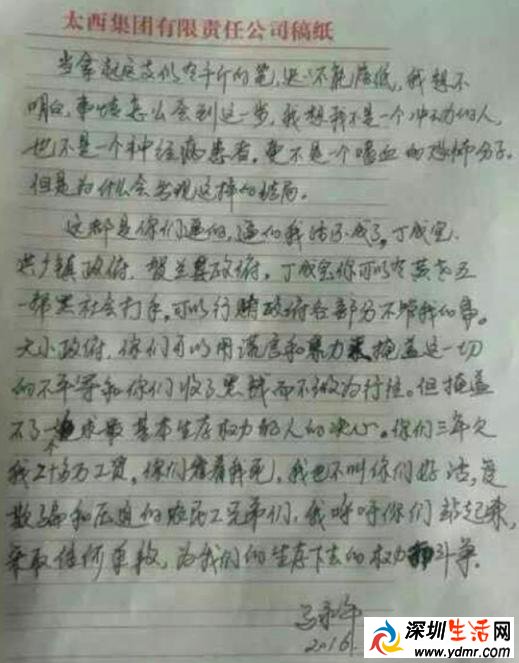 太西集团有限责任公司稿纸
当拿起这支似千斤的笔,迟不能落纸,我想不
明白,事情怎么会到这一步,我想我不是一个冲动的人,
也不是一个神经病患者,更不是个嗜血的恐怖分子。
但是为什么会出现这样的结局。
这都是你们逼的,逼的我活不成了,丁成宝、
洪广镇政府、贺兰县政府,丁成宝你可以黄老五
一帮黑社会打手,可以行贿政府各部分不管我的事。
大小政府,你们可以用谎言和暴力来掩盖这一切
的不平等和你们收了黑钱而不作为行径。但掩盖
不了追求最基本生存权力的人的决心。你们三年欠
我二十多万工资,你们看着我死,我也不叫你们好活,受
欺骗和压迫的农民工兄弟们,我呼吁你们站起来,
采取任何手段,为我们的生存下去的权力斗争。
马永平
2016.
深圳生活网
www.ydmr.com